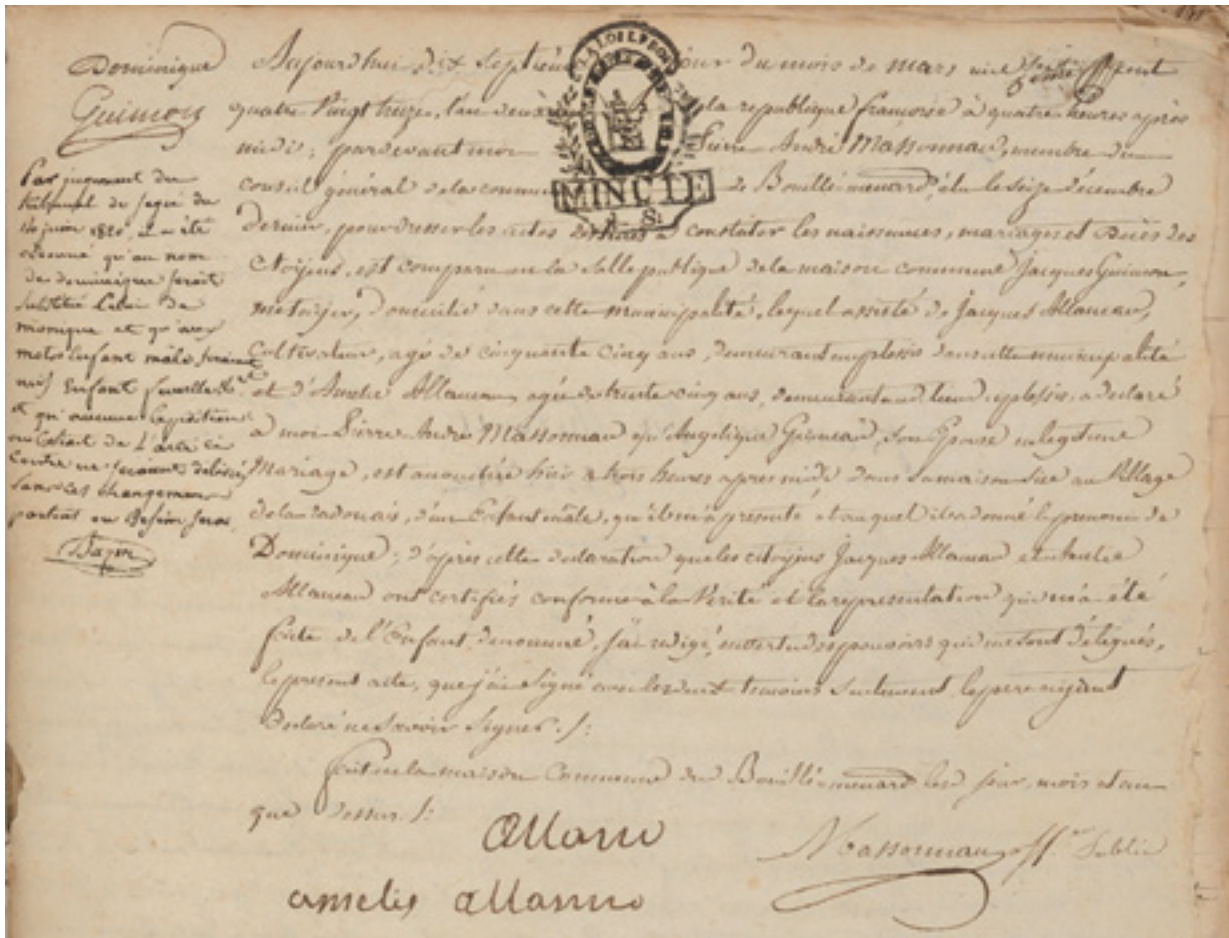 Dominique
Guimon
Par jugement du
tribunal de Segré du
juin 1820, il a été
ordonné qu'au nom
de dominique serait
substitué Celui de
monique et qu'aux
mots Enfant mâle seraient
mis Enfant femelle
et qu'aucune Expédition
ou Extrait de L'acte ci
Contre ne seraient délivrés
sans ces changemens
Aujourd'hui dix septième jour du mois de mars mil sept cent
quatre Vingt treize, l'an deuxième de la republique françoise à quatre heures après
midi; pardevant moi Pierre André Massonneau, membre du
conseil général de la commune de Bouillé-menard, élu le seize décembre
dernier, pour dresser les actes destinés à constater les naissances, mariages et décès des
Citoyens, est comparu en la salle publique de la maison commune Jacques Guimon,
métayer, domicilié dans cette municipalité, lequel assisté de Jacques Allaneau,
Cultivateur, agé de cinquante cinq ans, demeurant au plessis dans cette municipalité
et d'Amelie Allaneau agée de trente cinq ans, demeurante au dit lieu du plessis, a déclaré
à moi Pierre André Massonneau qu'Angelique son Epouse en legitime
Mariage, est accouchée hier à trois heures après midi dans sa maison sise au Village
de la d'un Enfant mâle, qu'il m'a presenté et auquel il a donné le prenom de
Dominique; d'après cette declaration que les citoyens Jacques Allaneau et Amelie
Allaneau ont certifiés conforme à la Vérité et la representation qui m'a été
faite de l'Enfant denommé, j'ai redigé, en vertu des pouvoirs qui me sont délégués,
le present acte, que j'ai signé avec les deux temoins seulement, le pere ayant
Declaré ne savoir signer ./:
fait en la maison Commune de Bouillé-menard les jour, mois et an
que dessus ./:
allano
Massonneau off. public
amelie allano
LA LOI LE ROI